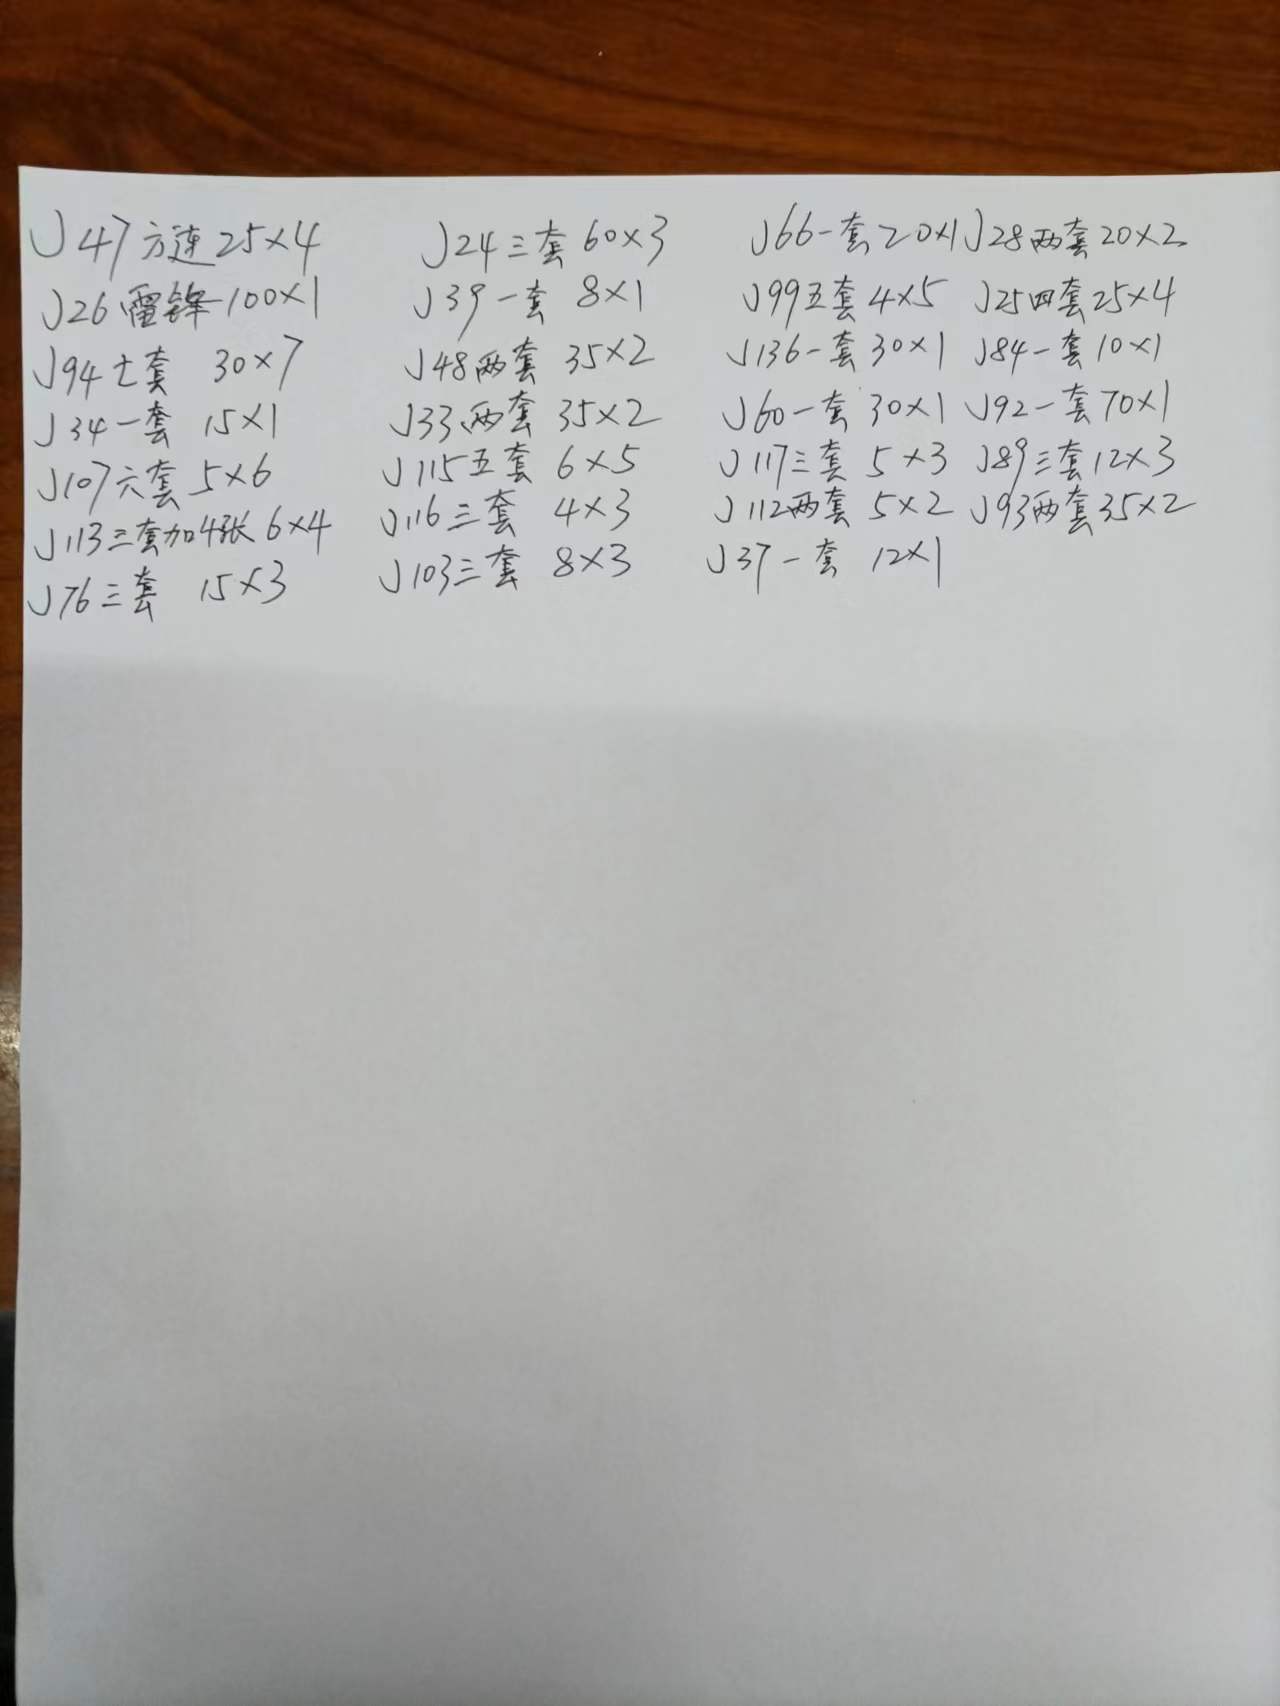 J47方连25×4
J26雷锋100×1
J94七套 30×7
J34一套 15×1
J107六套5×6
J113三套加4张6×4
J76三套 15×3
J24三套60×3
J39一套 8×1
J48两套 35×2
J33两套 35×2
J115五套 6×5
J116三套 4×3
J103三套 8×3
J66一套20×1
J99五套4×5
J136一套30×1
J60一套30×1
J117三套 5×3
J112两套 5×2
J37一套 12×1
J28两套20×2
J25四套25×4
J84一套10×1
J92一套70×1
J89三套12×3
J93两套35×2